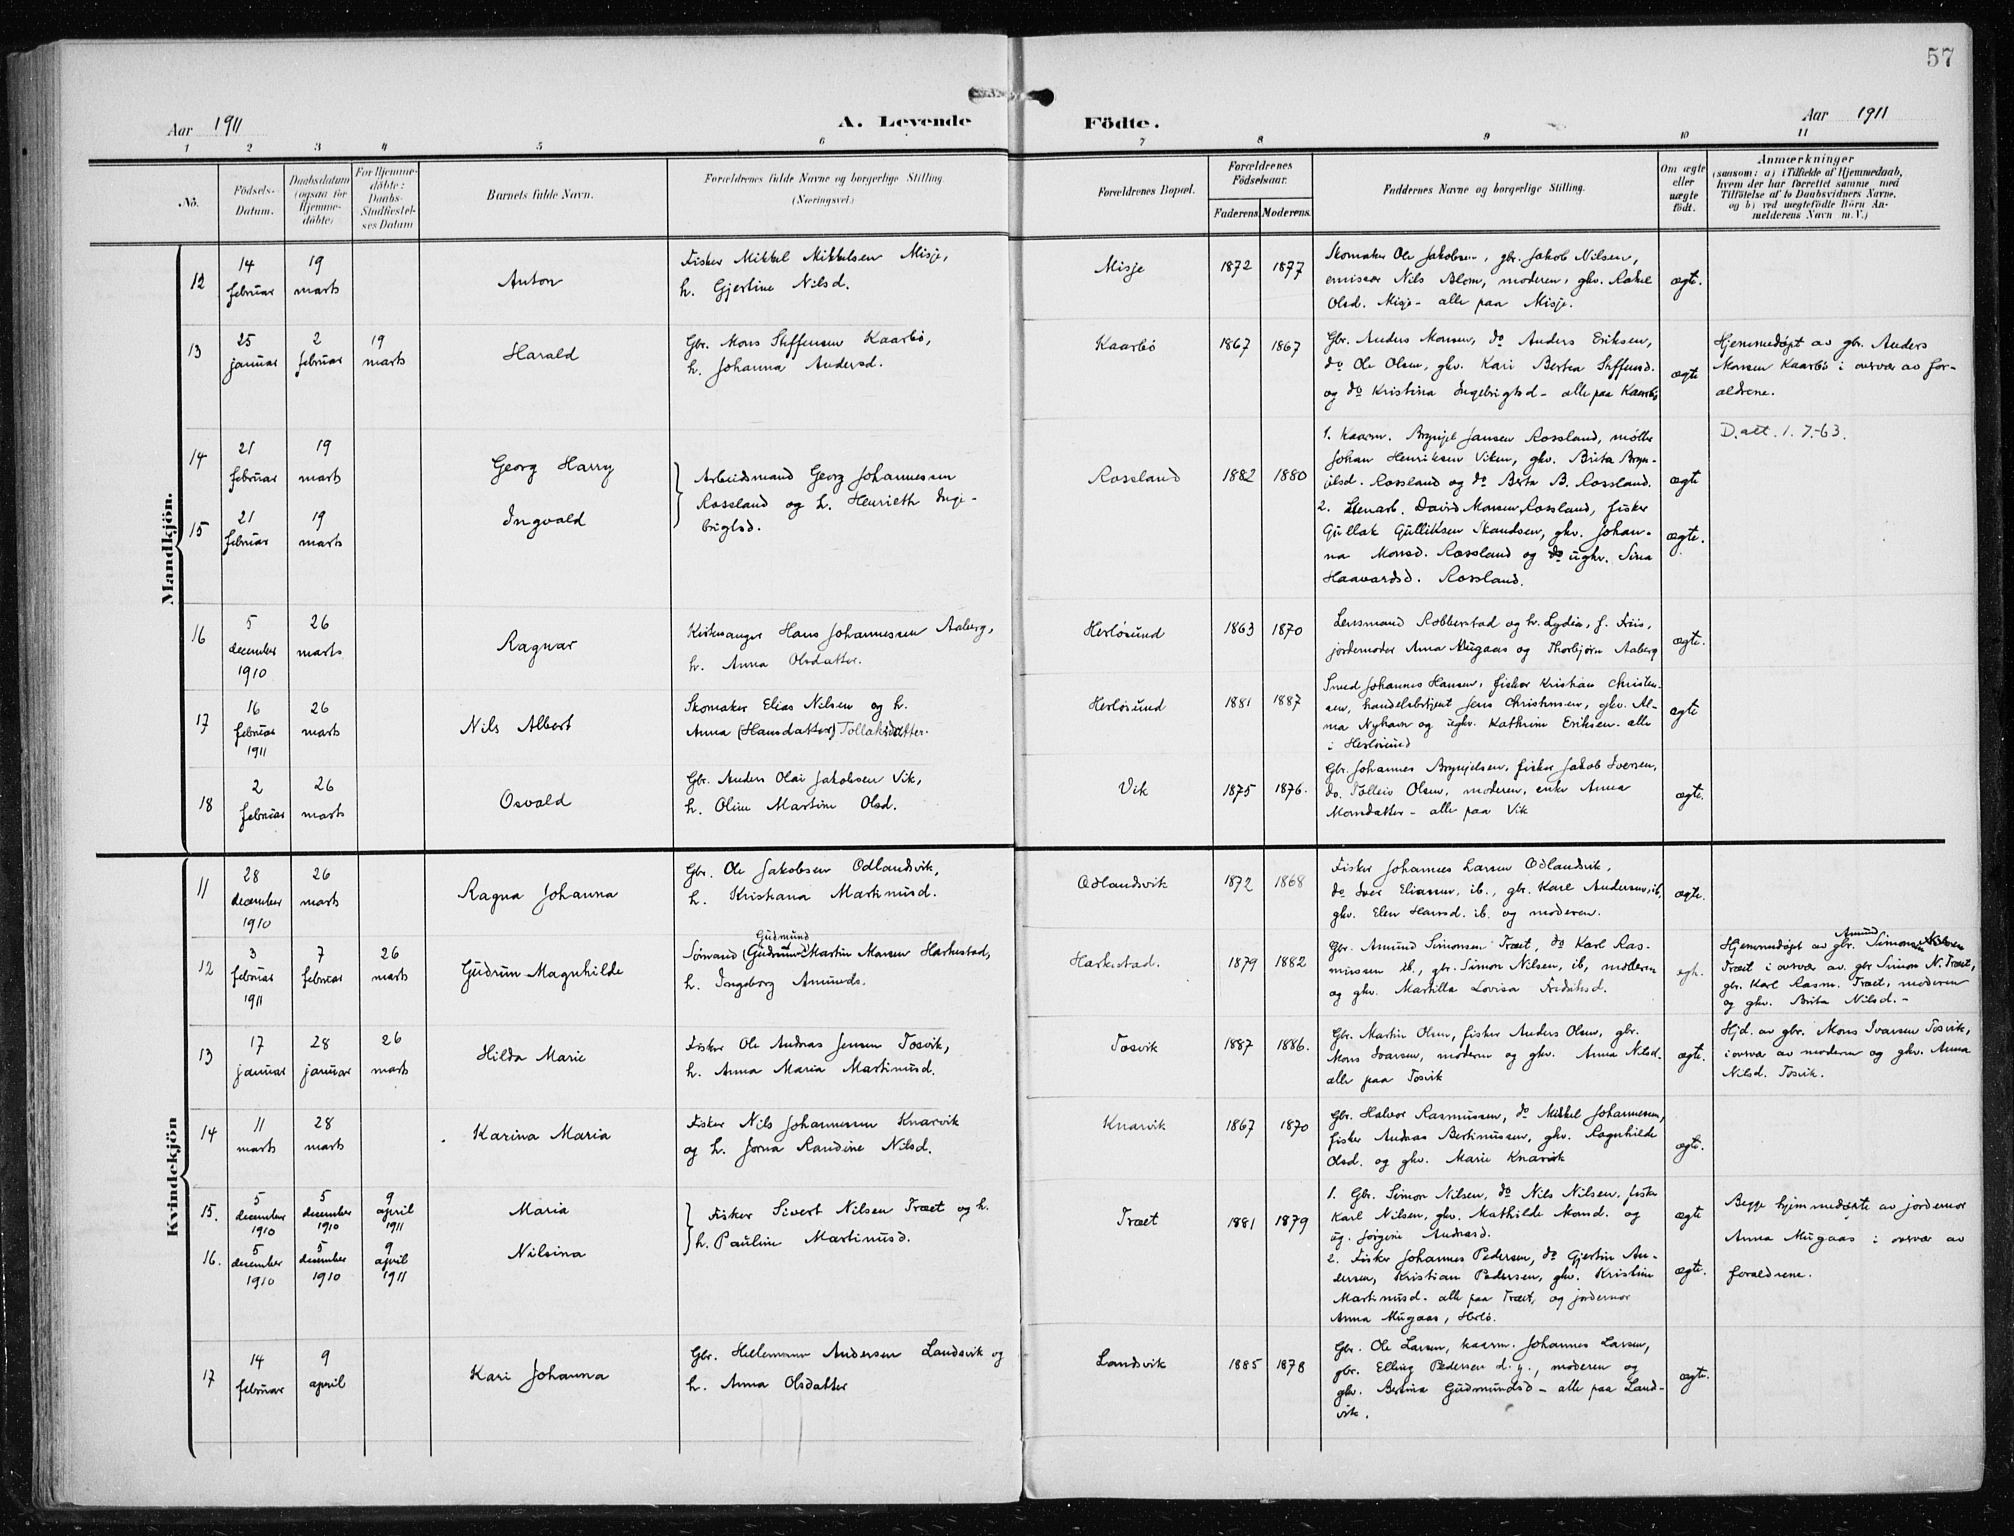 57
Aar 1911
A. Levende
Födte.
Aar 1911
1 2 3 4 5 6 7 8 9 10 11
No.
Födsels-
Datum.
Daabsdatum
(ogsaa for
Hjemme-
döbte)
For Hjemme-
döbte:
Daabs-
Stadfæstel-
ses Datum
Barnets fulde Navn.
Forældrenes fulde Navne og borgerlige Stilling.
(Næringsvei.)
Forældrenes Bopæl.
Forældrenes
Födselsaar.
Faderens. Moderens.
Faddernes Navne og borgerlige Stilling.
Om ægte
eller
uægte
födt.
Anmærkninger
(saasom: a) i Tilfælde af Hjemmedaab,
hvem der har forrettet samme med
Tilföielse af to Daabsvidners Navne,
og b) ved uægtefödte Börn An-
melderens Navn m. V.)
Mandkjön.
12
14
februar
19
marts
Anton
Fisker Mikkel Mikkelsen Misje,
h. Gjertine Nilsd.
Misje
1872 1877
Skomaker Ole Jakobsen, gbr. Jakob Nilsen,
emissær Nils Blom, moderen, gkv. Rakel
Olsd. Misje - alle paa Misje.
ægte.
13
25
januar
2
februar
19
marts
Harald
Gbr. Mons Steffensen Kaarbö,
h. Johanna Andersd.
Kaarbö
1867 1867
Gbr. Anders Monsen, do Anders Eriksen,
do Ole Olsen, gkv. Kari Bertea Steffensd.
og do Kristina Ingebrigtsd - alle paa Kaarbö
ægte
Hjemmedøpt av gbr. Anders
Monsen Kaarbö i overvær av for-
ældrene.
14
21
februar
19
marts
Georg Harry
15
21
februar
19
marts
Ingvald
Arbeidsmand Georg Johannessen
Rossland og h. Henrieth Inge-
brigtsd.
Rossland
1882 1880
1. Kaarm. Brynjel Jansen Rossland, møller
Johan Henriksen Viken, gkv. Brita Bryn-
jelsd. Rossland og do Berta B. Rossland.
2. Stenarb. David Monsen Rossland, fisker
Gullak Gulliksen Skandsen, gkv. Johan-
na Monsd. Rossland og ugkv. Sina
Haavardsd. Rossland.
ægte
ægte.
D.att. 1.7.-63.
16
5
december
1910
26
marts
Ragnar
Kirkesanger Hans Johannessen Aaberg,
h. Anna Olsdatter.
Herlösund
1863 1870
Lensmand Robberstad og h. Lydia, f. Friis,
jordemoder Anna Mugaas og Thorbjörn Aaberg
ægte.
17
16
februar
1911
26
marts
Nils Albert
Skomaker Elias Nilsen og h.
Anna (Hansdatter) Tollaksdatter.
Herlösund
1881 1887
Smed Johannes Hansen, fisker Kristian Christen-
sen, handelsbetjent Jens Christensen, gkv. Al-
ma Nyhavn og ugkv. Kathrine Eriksen - alle
i Herlösund
ægte
18
2
februar
26
marts
Osvald
Gbr. Anders Olai Jakobsen Vik,
h. Oline Martine Olsd.
Vik
1875 1876.
Gbr. Johannes Brynjelsen, fisker Jakob Iversen,
do. Tolleiv Olsen, moderen, enke Anna
Monsdatter - alle paa Vik
ægte.
Kvindekjön
11
28
december
1910
26
marts
Ragna Johanna
Gbr. Ole Jakobsen Odlandsvik,
h. Kristiana Martinusd.
Odlandsvik
1872 1868
Fisker Johannes Larsen Odlandsvik,
do Iver Eliassen, ib., gbr. Karl Andersen, ib,
gkv. Elen Hansd. ib. og moderen.
ægte.
12
3
februar
1911
7
februar
26
marts
Gudrun Magnhilde
Gudmund
Sømand (Gudmund) Martin Monsen Harkestad,
h. Ingeborg Amunds.
Harkestad.
1879 1882
Gbr. Amund Simonsen Træet, do Karl Ras-
mussen ib., gbr. Simon Nilsen, ib, moderen
og gkv. Martilla Lovisa Fredriksd.
egte.
Amund
Hjemmedøpt av gbr. Simonsen Nilsen
Træet i overvær av gbr Simon N. Træet,
gbr. Karl Rasm. Træet, moderen
og gkv. Brita Nilsd. -
13
17
januar
28
januar
26
marts
Hilda Marie
Fisker Ole Andreas Jensen Tosvik,
h. Anna Maria Martinusd.
Tosvik
1887 1886.
Gbr. Martin Olsen, fisker Anders Olsen, gbr.
Mons Ivarsen, moderen og gkv. Anna Nilsd.
alle paa Tosvik
ægte.
Hjd. av gbr. Mons Ivarsen Tosvik,
i overvær av moderen og gkv. Anna
Nilsd. Tosvik.
14
11
marts
28
marts
Karina Maria
Fisker Nils Johannessen Knarvik
og h. Jorna Randine Nilsd.
Knarvik
1867 1870
Gbr. Halvor Rasmussen, do Mikkel Johannessen,
fisker Andreas Bertinussen, gkv. Ragnhilde
Olsd. og gkv. Marie Knarvik
ægte.
15.
5
december
1910
5
december
1910
9
april
1911
Maria
16.
5
december
1910
5
december
1910
9
april
1911
Nilsina
Fisker Sivert Nilsen Træet og h.
h. Pauline Martinusd.
Træet
1881 1879
1. Gbr. Simon Nilsen, do Nils Nilsen, fisker
Karl Nilsen, gkv. Mathilde Monsd. og
ug. Jörgine Andreasd.
2. Fisker Johannes Pedersen, do Gjertin An-
dersen, Kristian Pedersen, gkv. Kristine
Martinusd. alle paa Træet, og jordemor
Anna Mugaas, Herlö.
ægte
ægte.
Begge hjemmedøpte av jordemor
Anna Mugaas i overvær av
foreldrene.
17
14
februar
9
april
Kari Johanna
Gbr. Hellemann Andersen Landsvik og
h. Anna Olsdatter
Landsvik
1885 1878
Gbr. Ole Larsen, kaarm. Johannes Larsen,
gbr. Elling Pedersen d. y., moderen og
gkv. Bertina Gudmundsd - alle paa Land-
svik.
ægte.